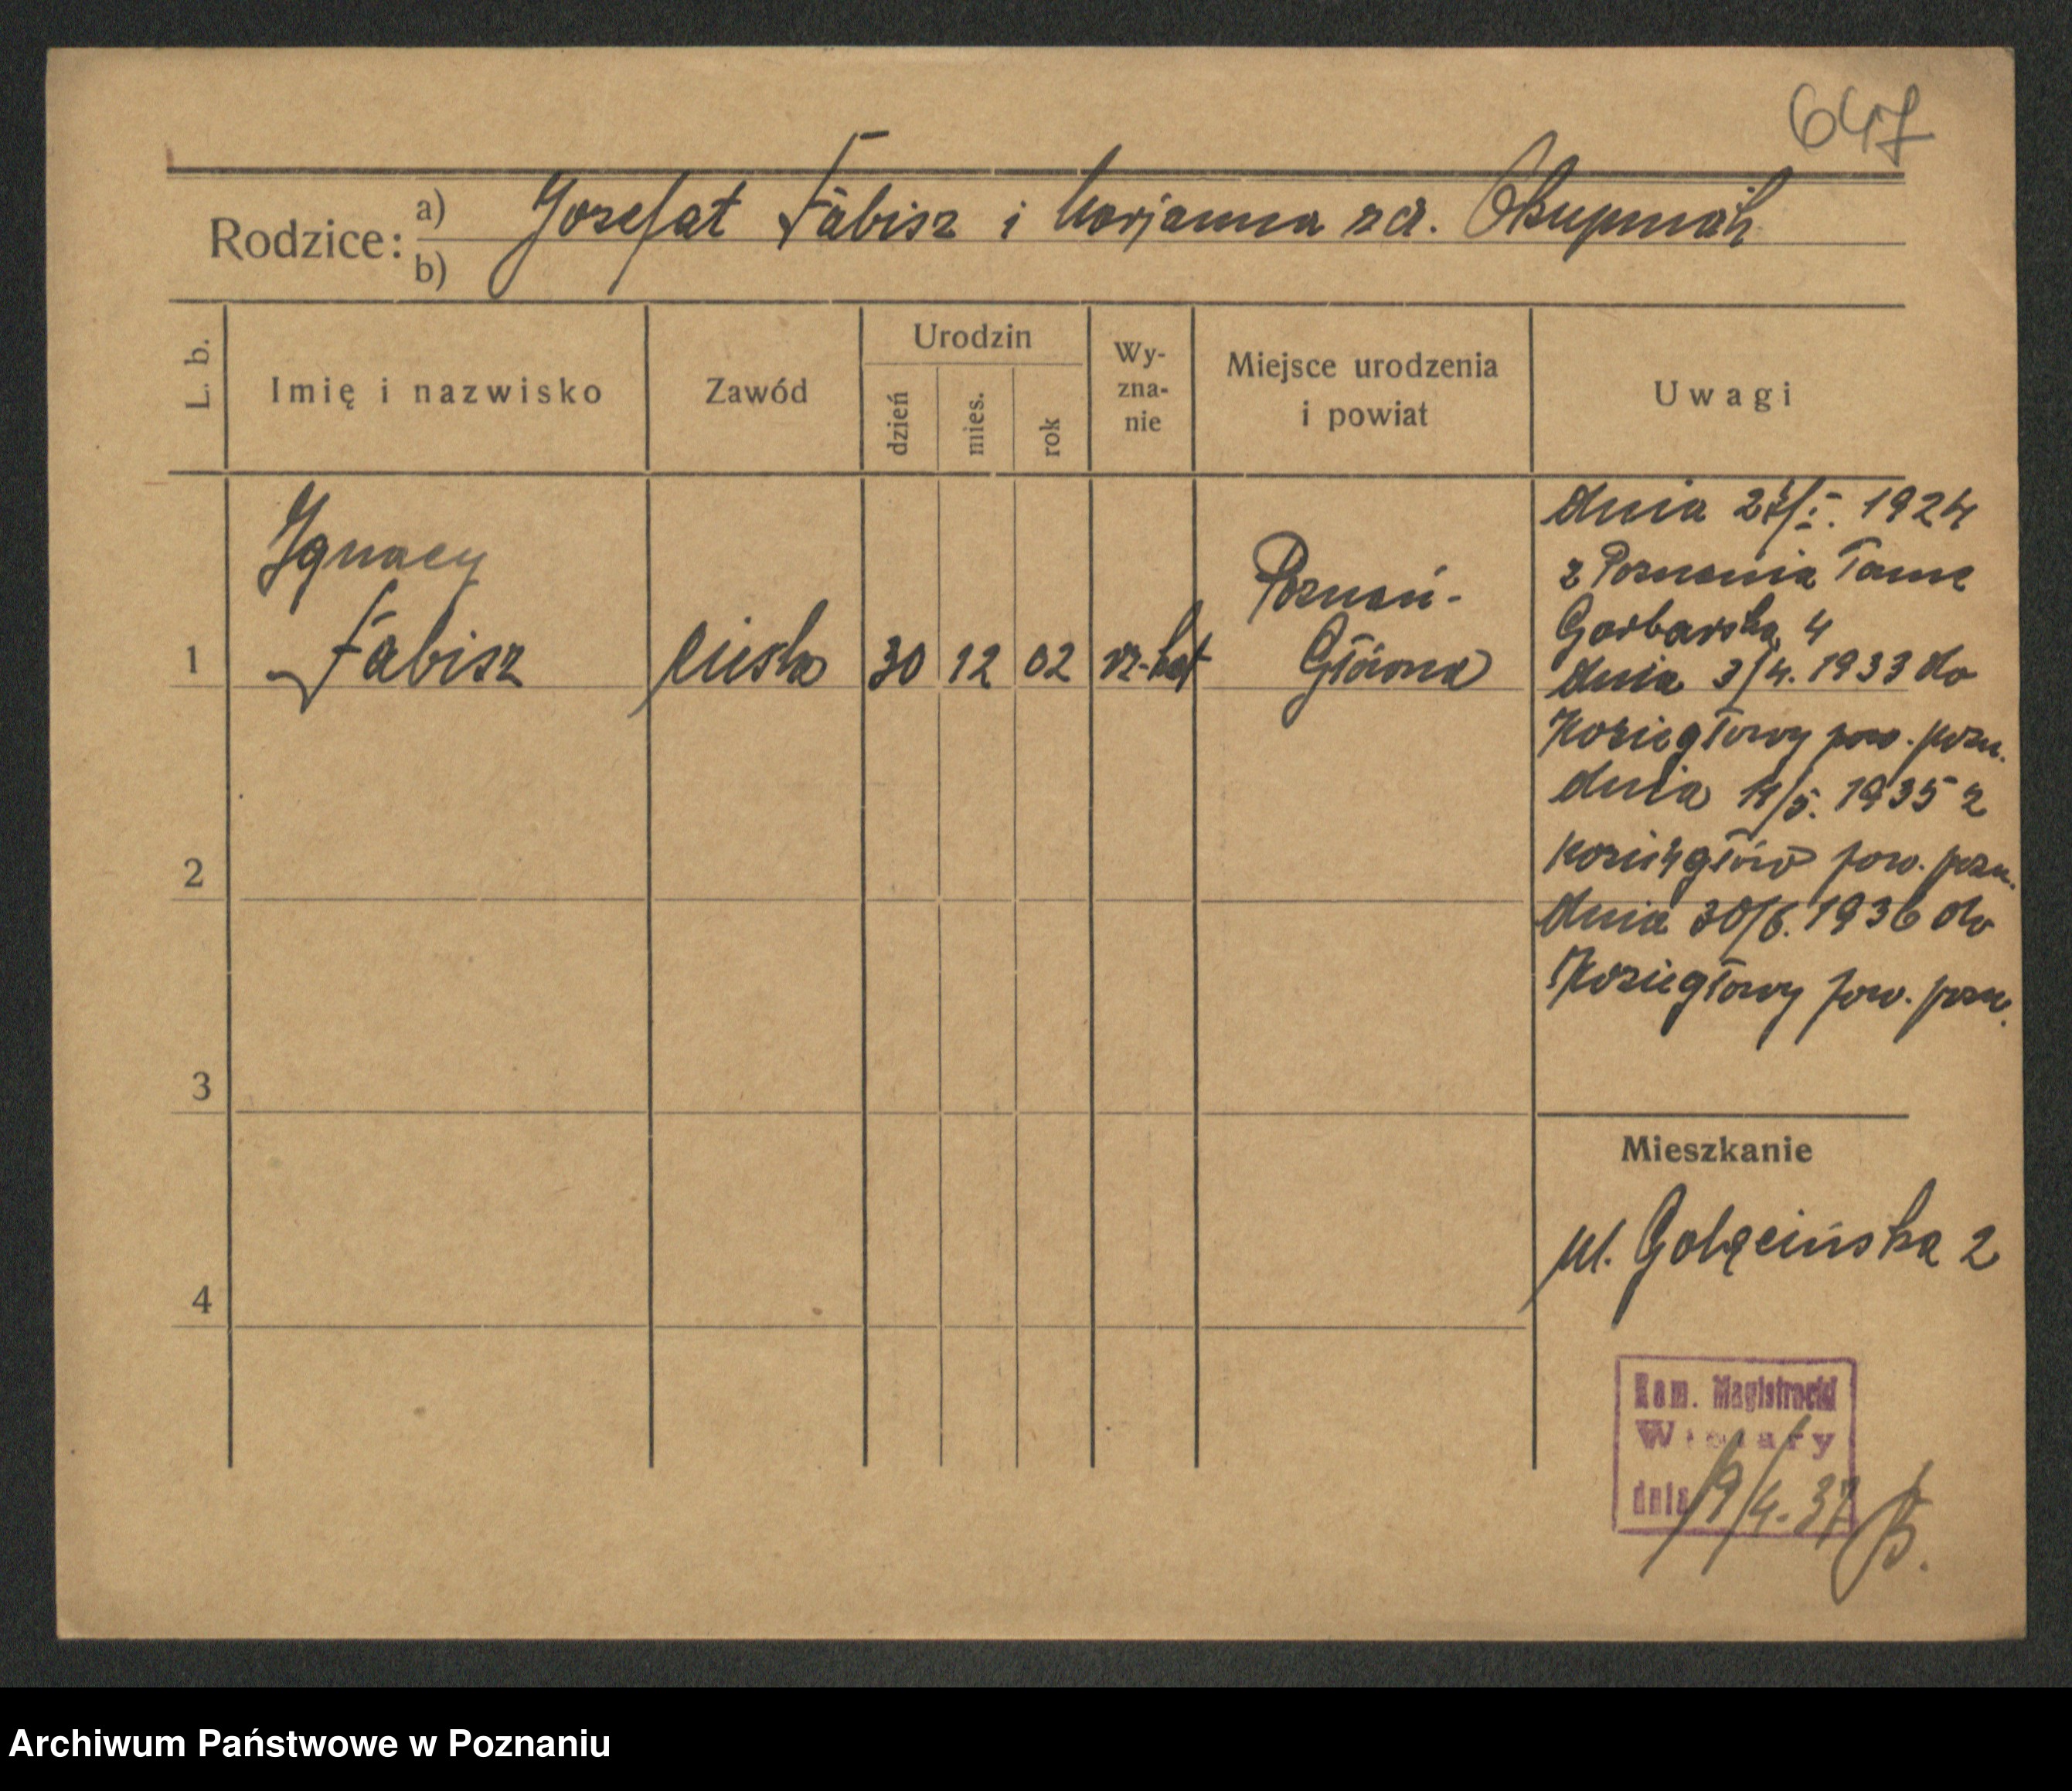 647
Rodzice: a) Jozefat Fabisz i Marjanna zd. Skupniak
b)
L. b.
Imię i nazwisko
Zawód
Urodzin
dzień
mies.
rok
Wy-
zna-
nie
Miejsce urodzenia
i powiat
Uwagi
1
Ignacy
Fabisz
cieśla
30
12
02
rz-kat
Poznań-
Główna
dnia /I. 1924
z Poznania Tama
Garbarska 4
dnia 3/4. 1933 do
Koziegłowy pow. pozn.
dnia 11/5. 1935 z
Kozichgłów pow. pozn.
dnia 30/6. 1936 do
Koziegłowy pow. pozn.
2
3
4
Mieszkanie
ul. Golęcińska 2
Kom. Magistracki
Winiary
dnia 19/4. 37
Archiwum Państwowe w Poznaniu